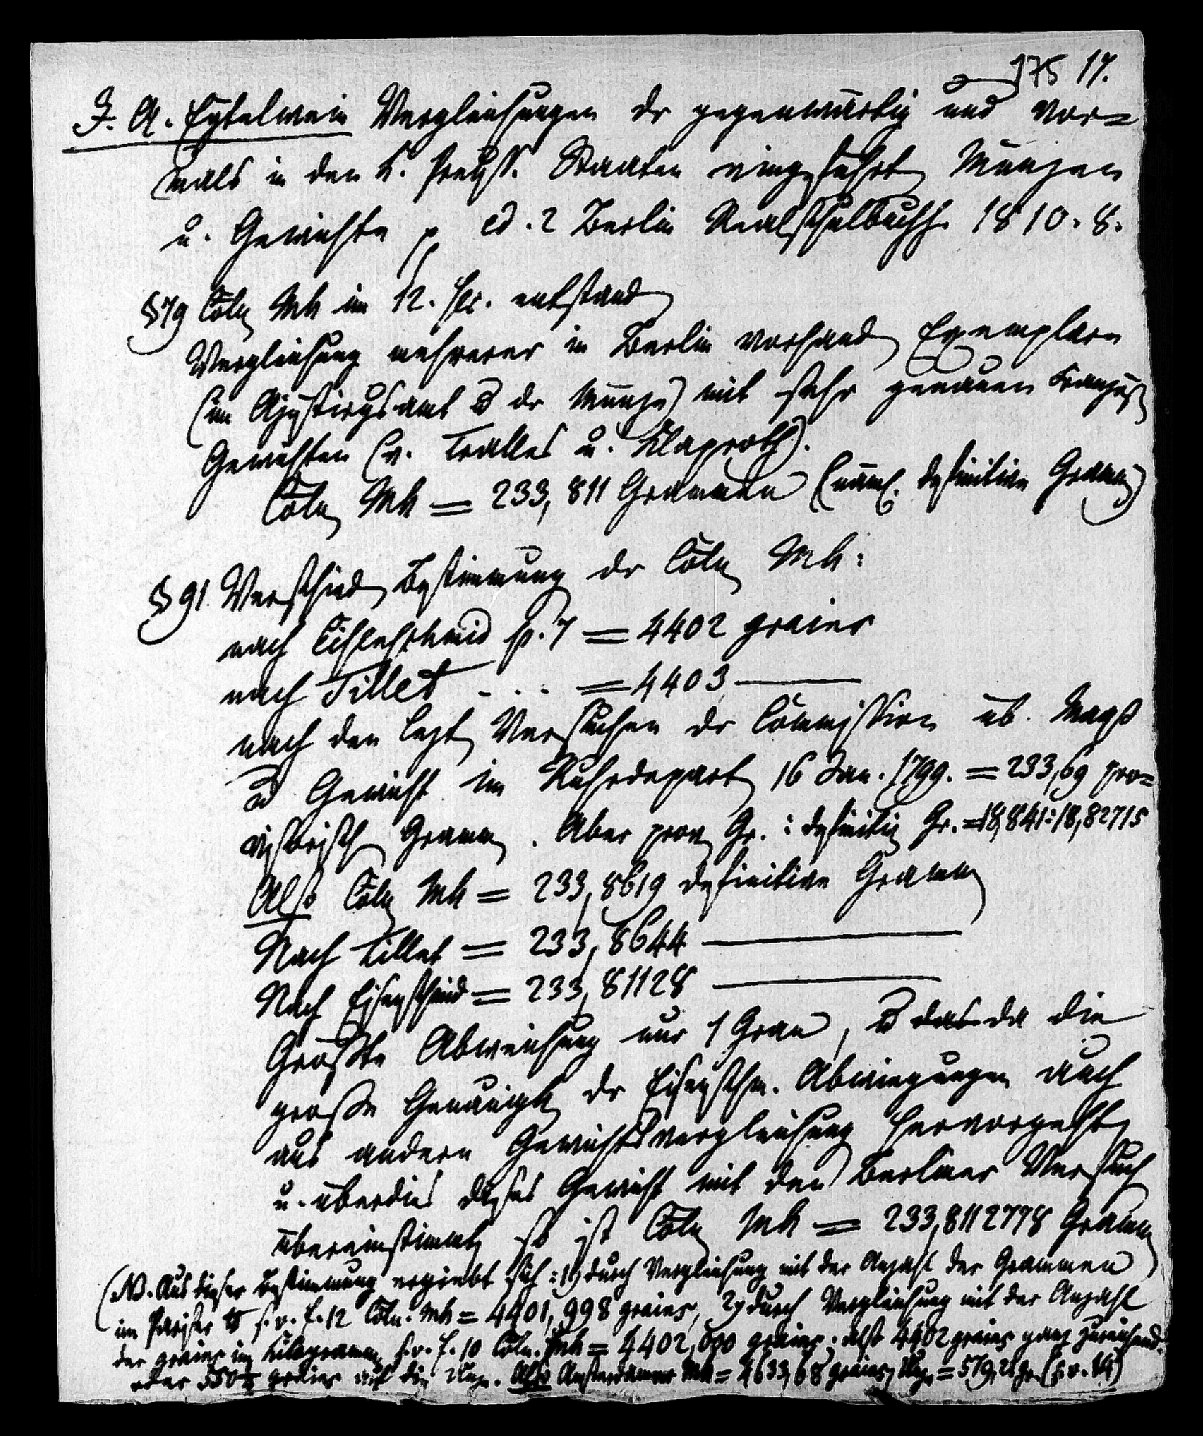 175 17.
J. A. Eytelwein Vergleichungen der gegenwärtig und vor=
mals in den K. Preuß. Staaten eingeführt Münzen
u. Gewichte p ed. 2 Berlin Realschulbuchh. 1810. 8.
§ 79 Cöln Mk im 12. entstand
Vergleichung mehrerer in Berlin vorhand Exemplare
(im Ajustirgsamt u der Münze) mit sehr genauen französ
Gewichten (v. Tralles u. Klaproth).
Cöln Mk = 233,811 Grammen (näml. definitive Gramm)
§ 91 Verschied Bestimmung der Cöln Mk:
nach p. 7 = 4402 grains
nach Tillet . . . = 4403 —
nach den letzt Versuchen der Commission üb. Maaß
u Gewicht im Ruhrdepart 16 Jan. 1799. = 233,69 pro=
visorisch Gramm. Aber prov Gr. : definitiv Gr. = 18,841:18,82715
Also Cöln Mk = 233,8619 definitive Gramm
Nach Tillet = 233,8644 —
Nach Eisenschmid = 233,81128 —
Größte Abweichung nur 1 Gran, u da die
große Genauigk der Eisenschm. Abwiegungen auch
aus andern Gewichtsvergleichung hervorgeht
u. überdies dieses Gewicht mit den Berliner Versuch
übereinstimmt so ist Cöln Mk = 233,8112778 Gramm
(NB. Aus dieser Bestimmung ergiebt sich: 1) durch Vergleichung mit der Anzahl der Grammen
im Pariser ℔ s. v. f. 12 Cöln. Mk = 4401,998 grains, 2) durch Vergleichung mit der Anzahl
der grains im Kilogramm s. v. f. 10 Cöln. Mk = 4402,000 grains; also 4402 grains ganz zureichend.
oder 550¼ grains auf die Unze. Also Amsterdamer Mk = 4633,68 grains, Unze = 579,21 gr. (s. v. 14)